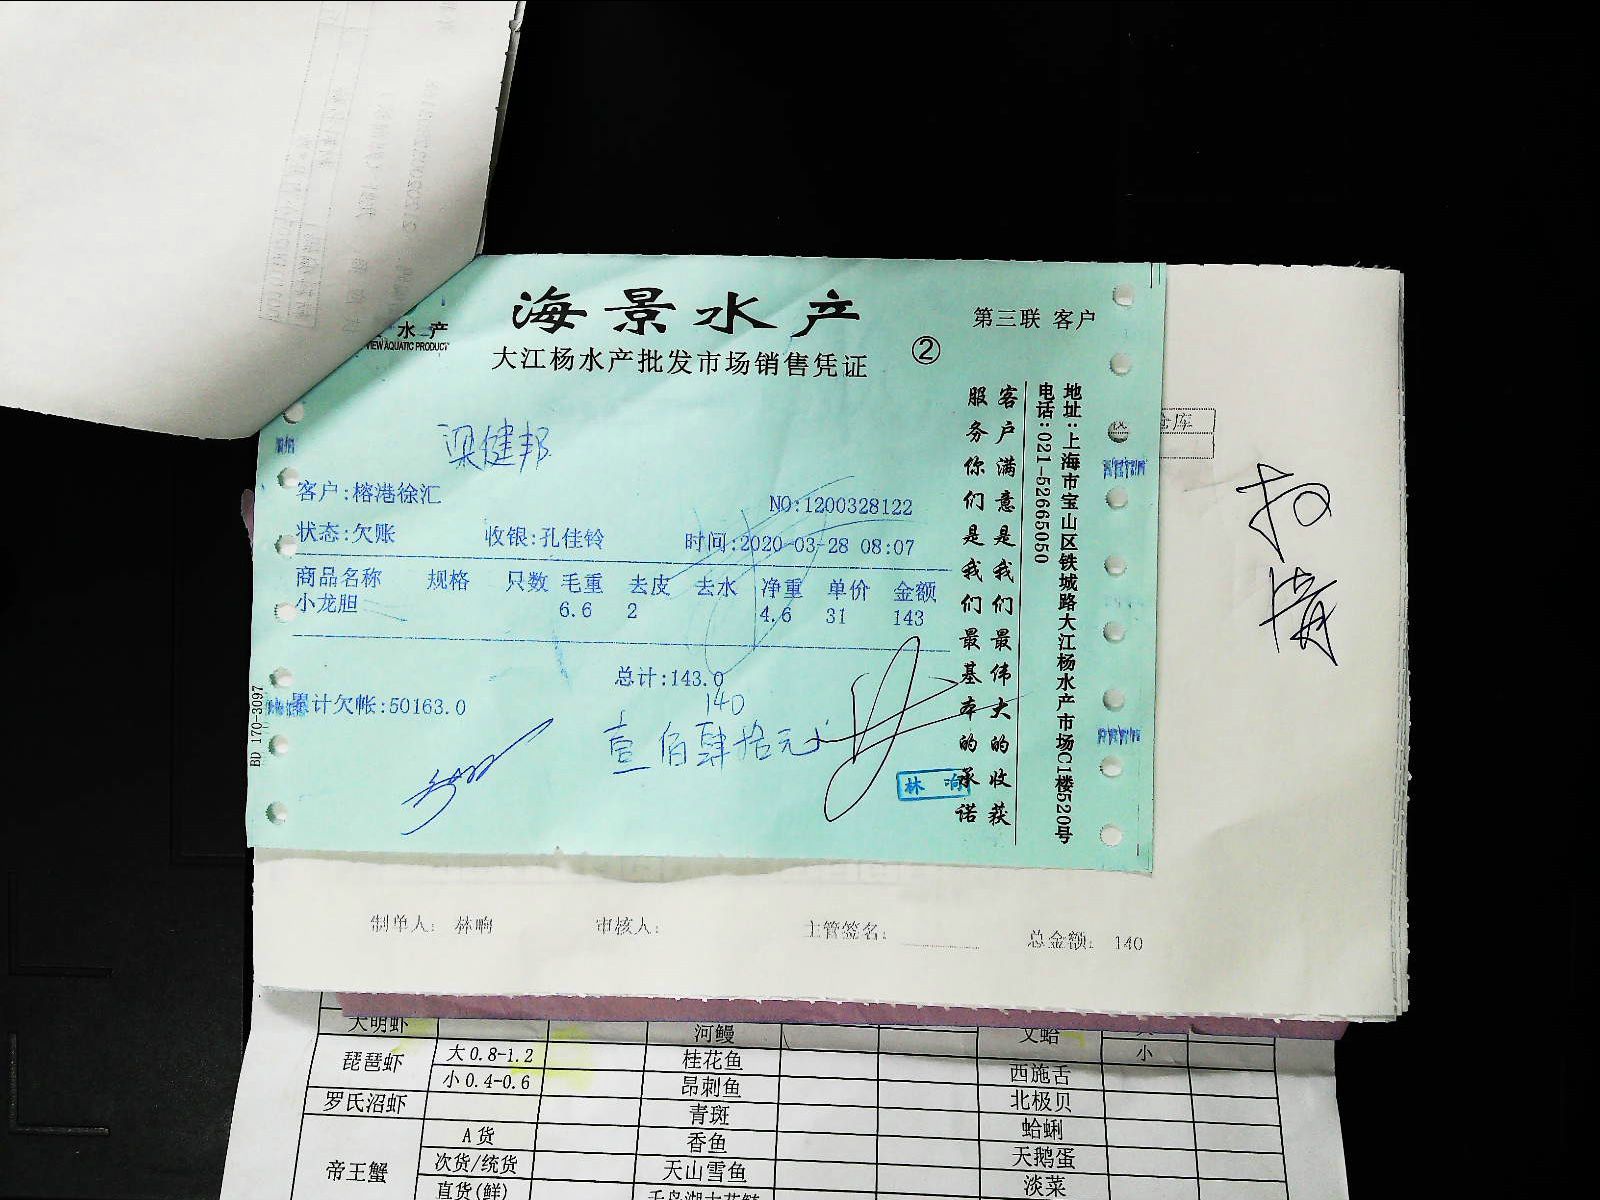 海景水产
水产
VIEW AQUATIC PRODUCT
大江杨水产批发市场销售凭证
②
第三联 客户
梁健邦
客户:榕港徐汇
NO:1200328122
状态:欠账 收银:孔佳铃 时间:2020-03-28 08:07
商品名称 规格 只数 毛重 去皮 去水 净重 单价 金额
小龙胆 6.6 2 4.6 31 143
总计:143.0
累计欠帐:50163.0
140
壹佰肆拾元
林响
BD 170-3097
客户满意是我们最伟大的收获
服务你们是我们最基本的承诺
地址:上海市宝山区铁城路大江杨水产市场C1楼520号
电话:021-52665050
仓库
制单人: 林响 审核人: 主管签名: 总金额: 140
大明虾 河鳗 文蛤
琵琶虾 大0.8-1.2 桂花鱼 小
小0.4-0.6 昂刺鱼 西施舌
罗氏沼虾 青斑 北极贝
帝王蟹 A货 香鱼 蛤蜊
次货/统货 天山雪鱼 天鹅蛋
直货(鲜) 淡菜